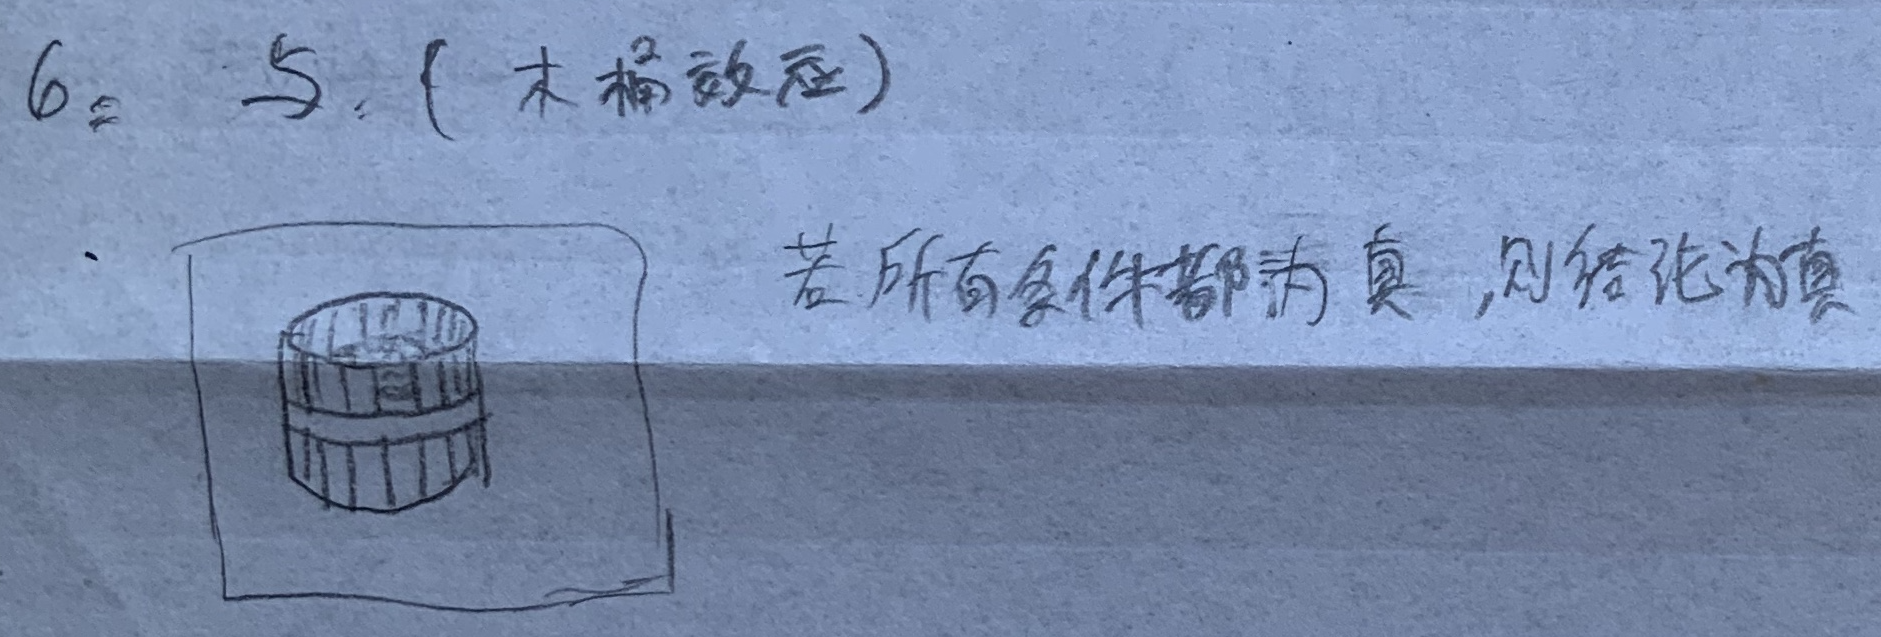 6= 与.(木桶效应)
若所有条件都为真,则结论为真